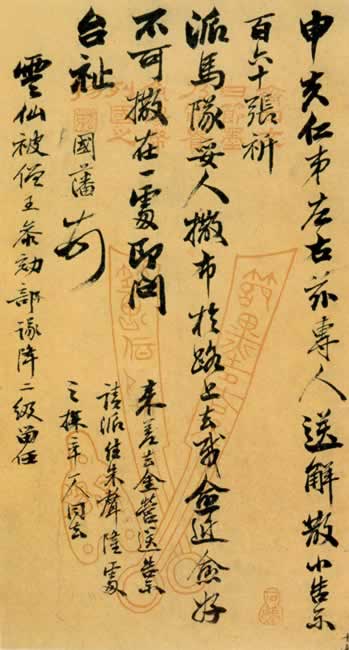 申夫仁弟左右兹專人送解散小告示
百六十張祈
派馬隊妥人撒布於路上去我愈近愈好
不可撒在一處即問
台祉 國藩 頓
來差去金營送告示
請派往朱聲隆處
之探卒一人同去
雲仙被僧王參劾部議降二級留任